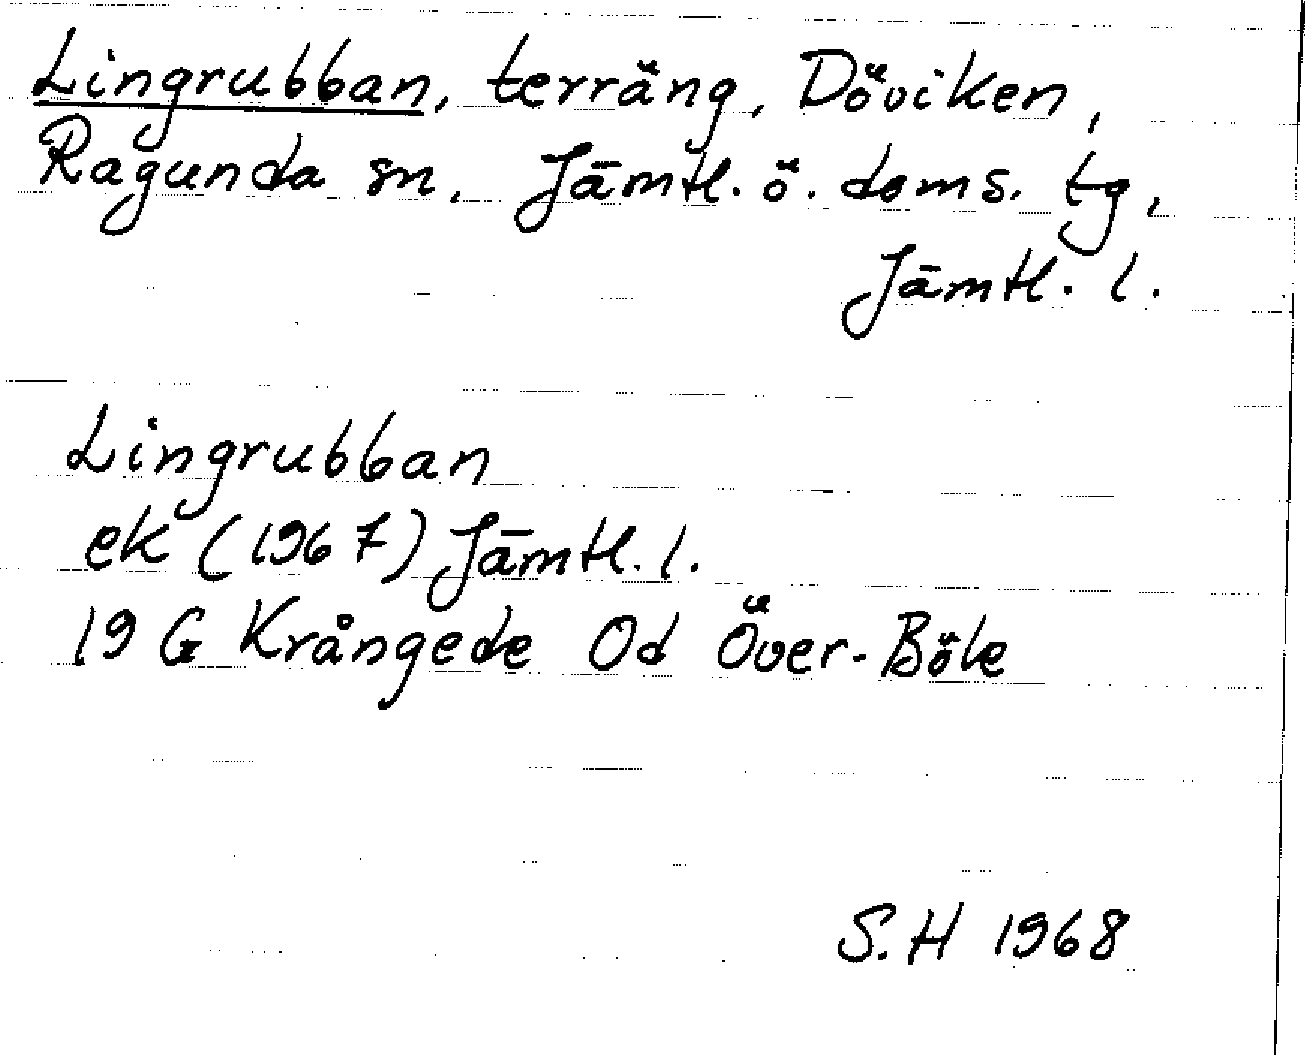 Lingrubban, terräng, Döviken,
Ragunda sn, Jämtl. ö. doms. tg,
Jämtl. l.
Lingrubban
ek (1967) Jämtl. l.
19 G Krångede Od Över-Böle
S.H 1968